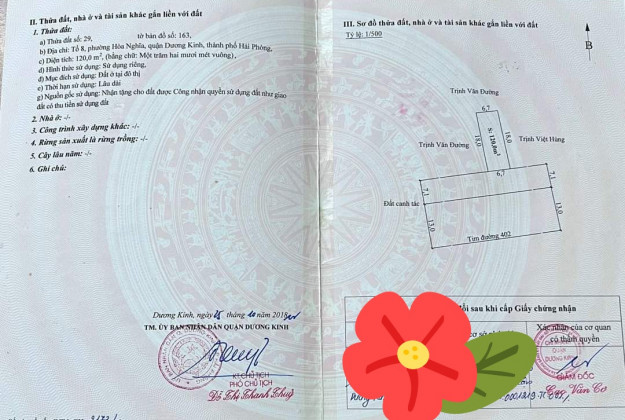 II. Thửa đất, nhà ở và tài sản khác gắn liền với đất
1. Thửa đất:
a) Thửa đất số: 29, tờ bản đồ số: 163,
b) Địa chỉ: Tổ 8, phường Hòa Nghĩa, quận Dương Kinh, thành phố Hải Phòng,
c) Diện tích: 120,0 m², (bằng chữ: Một trăm hai mươi mét vuông),
d) Hình thức sử dụng: Sử dụng riêng,
đ) Mục đích sử dụng: Đất ở tại đô thị
e) Thời hạn sử dụng: Lâu dài
g) Nguồn gốc sử dụng: Nhận tặng cho đất được Công nhận quyền sử dụng đất như giao
đất có thu tiền sử dụng đất
2. Nhà ở: -/-
3. Công trình xây dựng khác: -/-
4. Rừng sản xuất là rừng trồng: -/-
5. Cây lâu năm: -/-
6. Ghi chú:
Dương Kinh, ngày 25 tháng 10 năm 2018
TM. ỦY BAN NHÂN DÂN QUẬN DƯƠNG KINH
KT.CHỦ TỊCH
PHÓ CHỦ TỊCH
Đỗ Thị Thanh Thuỷ
III. Sơ đồ thửa đất, nhà ở và tài sản khác gắn liền với đất
Tỷ lệ: 1/500
B
Trịnh Văn Đường
6,7
Trịnh Văn Đường
18,0
S: 120,0m²
18,0
Trịnh Việt Hùng
6,7
7,1
7,1
Đất canh tác
13,0
13,0
Tim đường 402
đổi sau khi cấp Giấy chứng nhận
Xác nhận của cơ quan
có thẩm quyền
GIÁM ĐỐC
Cao Văn Cơ